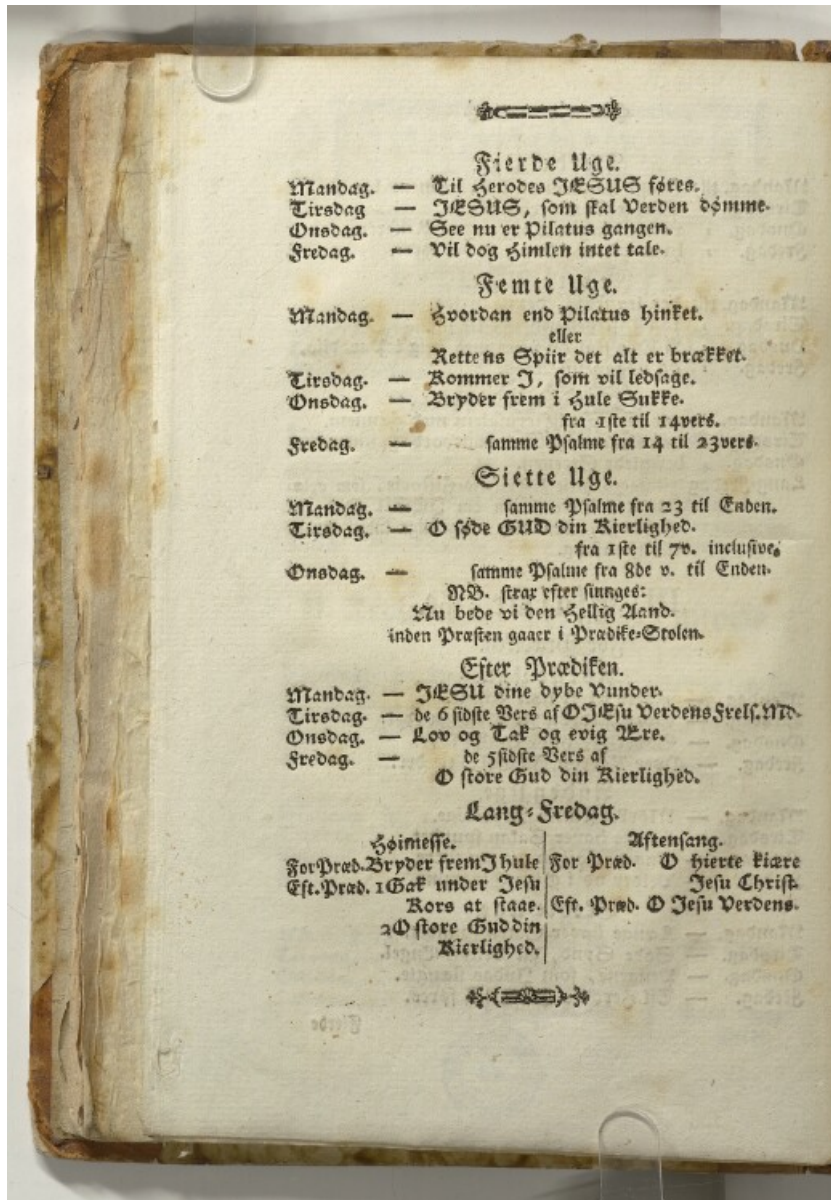 Fierde Uge.
Mandag. — Til Herodes JESUS føres.
Tirsdag — JESUS, som skal Verden dømme.
Onsdag. — See nu er Pilatus gangen.
Fredag. — Vil dog Himlen intet tale.
Femte Uge.
Mandag. — Hvordan end Pilatus hinket.
eller
Rettens Spiir det alt er brækket.
Tirsdag. — Kommer I, som vil ledsage.
Onsdag. — Bryder frem i Hule Sukke.
fra 1ste til 14vers.
Fredag. — samme Psalme fra 14 til 23vers.
Siette Uge.
Mandag. — samme Psalme fra 23 til Enden.
Tirsdag. — O søde GUD din Kierlighed.
fra 1ste til 7v. inclusive.
Onsdag. — samme Psalme fra 8de v. til Enden.
NB. strax efter siunges:
Nu bede vi den Hellig Aand.
inden Præsten gaaer i Prædike-Stolen.
Efter Prædiken.
Mandag. — JESU dine dybe Vunder.
Tirsdag. — de 6 sidste Vers af O JEsu Verdens Frels. Md.
Onsdag. — Lov og Tak og evig Ære.
Fredag. — de 5 sidste Vers af
O store Gud din Kierlighed.
Lang-Fredag.
Høimesse.
For Præd. Bryder frem I hule
Eft. Præd. 1 Gak under Jesu
Kors at staae.
2 O store Gud din
Kierlighed.
Aftensang.
For Præd. O hierte kiære
Jesu Christ.
Eft. Præd. O Jesu Verdens.